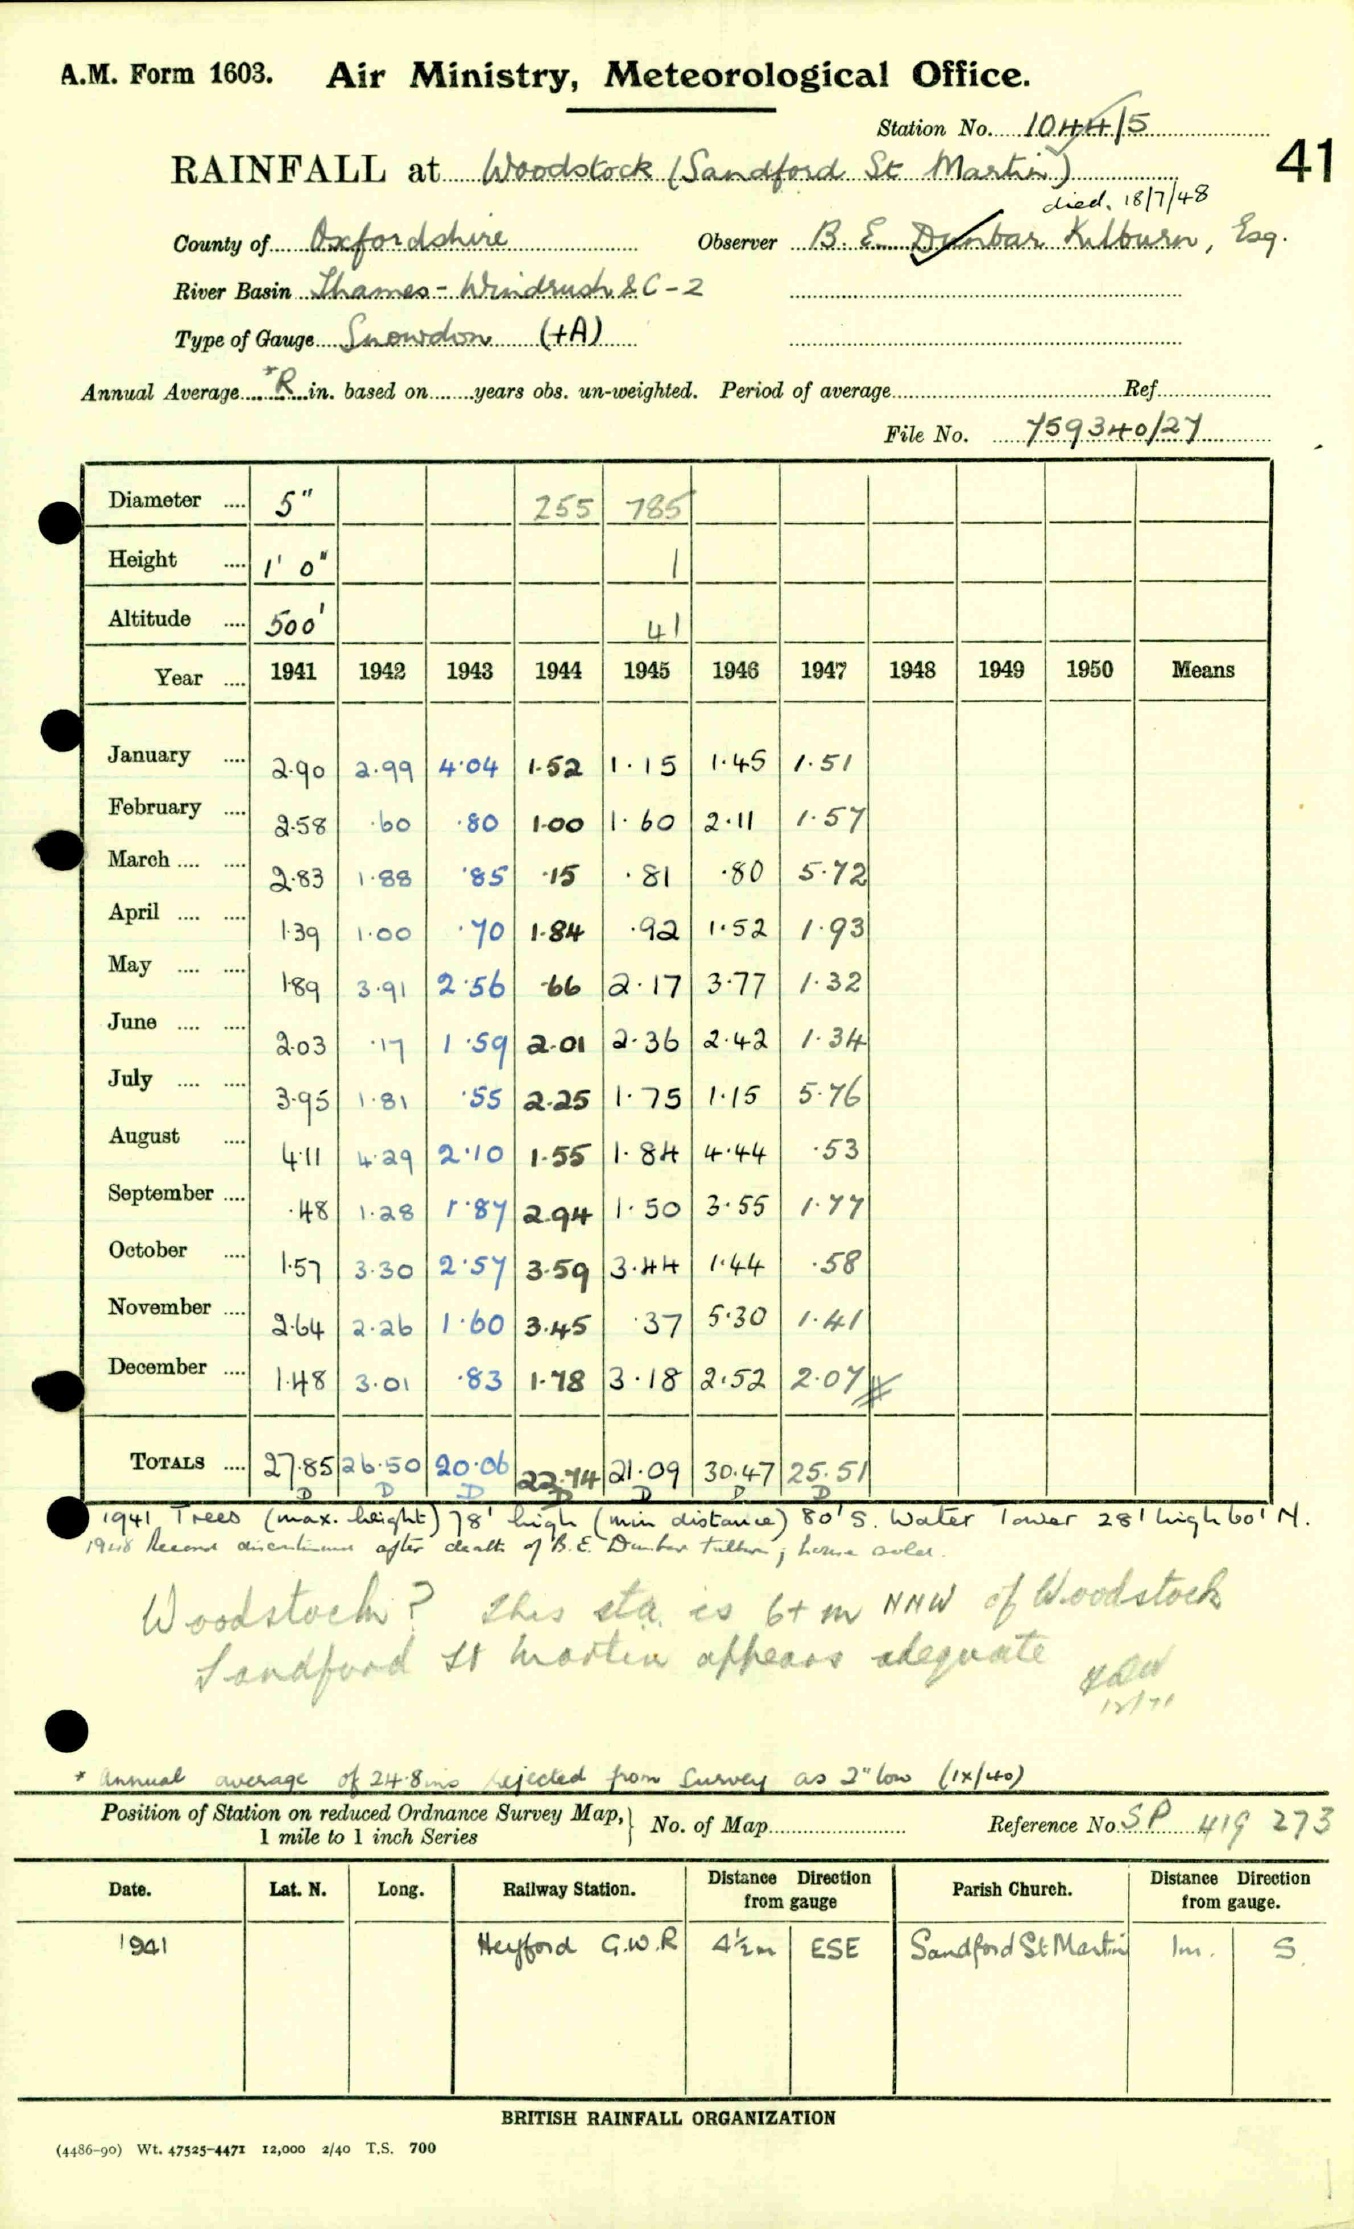 A.M. Form 1603. Air Ministry, Meteorological Office.
Station No. 1044/5
41
RAINFALL at Woodstock (Sandford St Martin)
died. 18/7/48
County of Oxfordshire Observer B. E. Dunbar Kilburn, Esq.
River Basin Thames - Windrush &C - 2
Type of Gauge Snowdon (+A)
Annual Average *R in. based on years obs. un-weighted. Period of average Ref
File No. 759340/27
Diameter .... 5" 255 785
Height .... 1' 0" 1
Altitude .... 500' 41
Year .... 1941 1942 1943 1944 1945 1946 1947 1948 1949 1950 Means
January .... 2.90 2.99 4.04 1.52 1.15 1.45 1.51
February .... 2.58 .60 .80 1.00 1.60 2.11 1.57
March .... .... 2.83 1.88 .85 .15 .81 .80 5.72
April .... .... 1.39 1.00 .70 1.84 .92 1.52 1.93
May .... .... 1.89 3.91 2.56 .66 2.17 3.77 1.32
June .... .... 2.03 .17 1.59 2.01 2.36 2.42 1.34
July .... .... 3.95 1.81 .55 2.25 1.75 1.15 5.76
August .... 4.11 4.29 2.10 1.55 1.84 4.44 .53
September .... .48 1.28 1.87 2.94 1.50 3.55 1.77
October .... 1.57 3.30 2.57 3.59 3.44 1.44 .58
November .... 2.64 2.26 1.60 3.45 .37 5.30 1.41
December .... 1.48 3.01 .83 1.78 3.18 2.52 2.07
TOTALS .... 27.85 26.50 20.06 22.74 21.09 30.47 25.51
D D D D D D D
1941 Trees (max. height) 78' high (min distance) 80' S. Water Tower 28' high 60' N.
1948 Record discontinued after death of B. E. Dunbar Kilburn; house sold.
Woodstock? This sta. is 6+ m NNW of Woodstock
Sandford St Martin appears adequate
12/71
* Annual average of 24.8 ins rejected from Survey as 2" low (IX/40)
Position of Station on reduced Ordnance Survey Map, } No. of Map Reference No. SP 419 273
1 mile to 1 inch Series
Date. Lat. N. Long. Railway Station. Distance Direction from gauge Parish Church. Distance Direction from gauge.
1941 Heyford G.W.R 4½m ESE Sandford St Martin 1m. S.
BRITISH RAINFALL ORGANIZATION
(4486-90) Wt. 47525-4471 12,000 2/40 T.S. 700